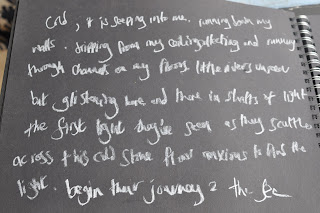 Cold, it is seeping into me. running down my
walls. dripping from my ceiling, collecting and running
through channels on my floors, little rivers unseen
but glistening here and there in shafts of light
the first light they've seen as they scuttle
across this cold stone floor anxious to find the
light. begin their journey 2 the sea